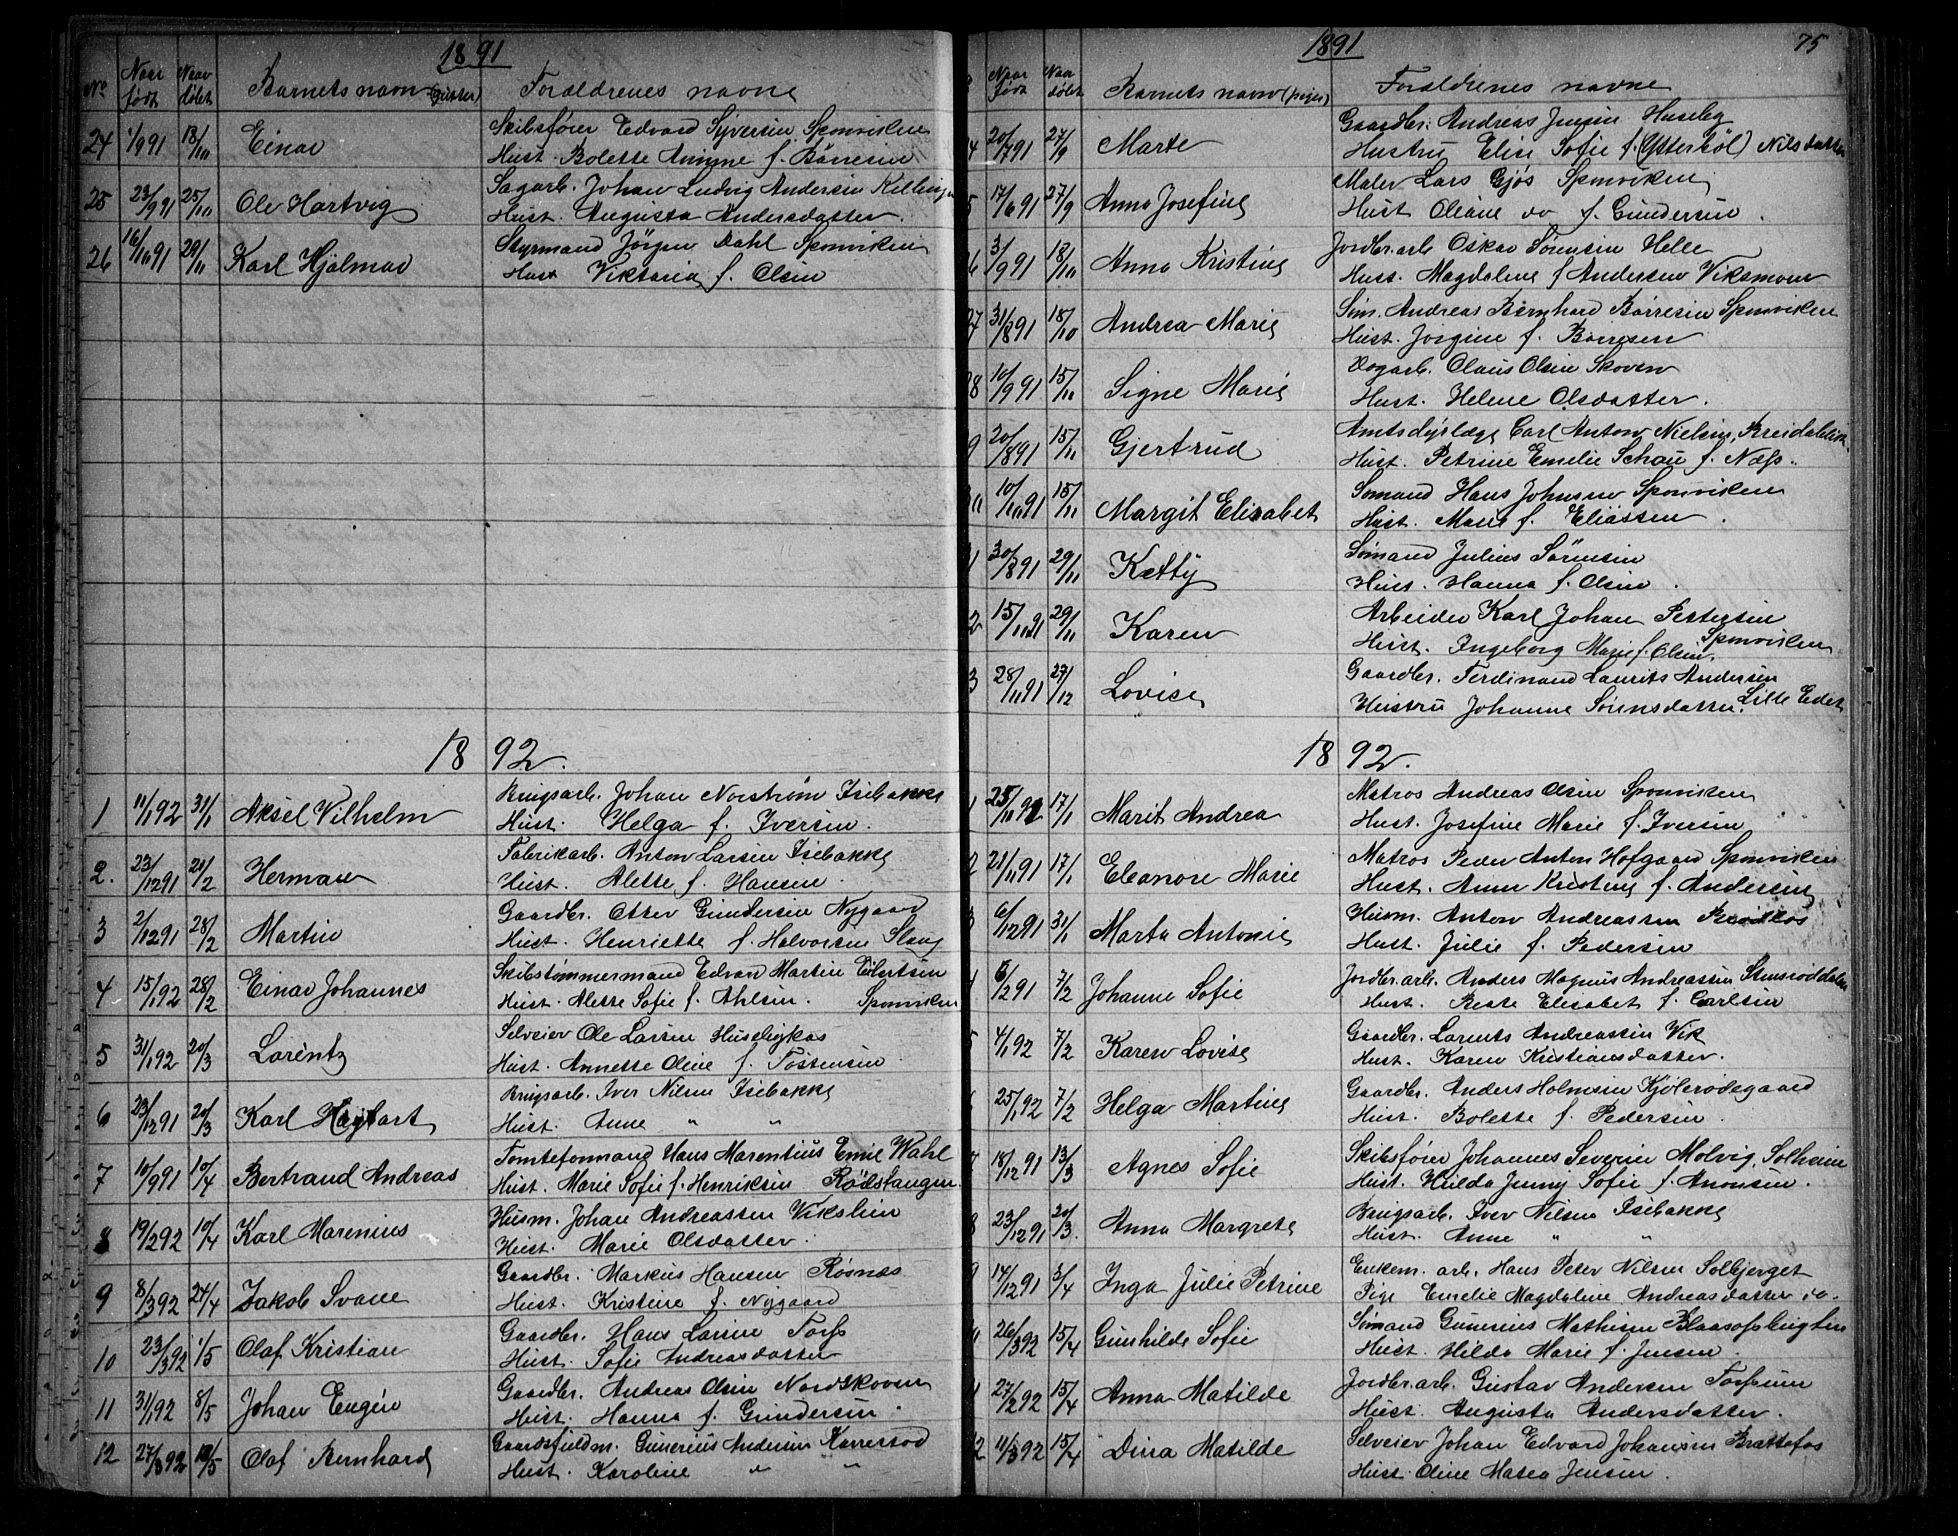 1891
No Naar født Naar døbt Barnets navn (gutter) Forældrenes navne
24 1/9 91 18/10 Einar Skibsfører Edvard Syversen Sponviken
Hust. Bolette Amine f. Børresen
25 23/9 91 25/10 Ole Hartvig Sagarb. Johan Ludvig Andersen
Hust. Augusta Andersdatter.
26 16/10 91 29/11 Karl Hjalmar Styrmand Jørgen Dahl Sponviken
Hust Viktoria f. Olsen
1892.
1 11/1 92 31/1 Aksel Vilhelm Brugsarb. Johan Norstrøm Isebakke
Hust. Helga f. Iversen.
2. 23/12 91 21/2 Herman Fabrikarb. Anton Larsen Isebakke
Hust. Alette f. Hansen.
3 2/12 91 28/2 Martin Gaardbr. Otter Gundersen Nygaard
Hust. Henriette f. Halvorsen
4 15/1 92 28/2 Einar Johannes Skibstømmermand Edvard Martin Eilertsen
Hust. Alette Sofie f. Ahlsen. Sponviken
5 31/1 92 20/3 Lorentz Selveier Ole Larsen Husebykas
Hust. Annette Oline f. Tostensen
6 23/12 91 20/3 Karl Hagbart Brugsarb. Iver Nilsen Isebakke
Hust. Anne " "
7 10/9 91 10/4 Bertrand Andreas Tomteformand Hans Marentius Emil Wahl
Hust. Marie Sofie f. Henriksen Rødstangen
8 19/2 92 10/4 Karl Marenius Husm. Johan Andreassen Vikslien
Hust. Marie Olsdatter.
9 8/3 92 24/4 Jakob Svane Gaardbr. Markus Hansen Røsnæs
Hust. Kristine f. Nygaard
10 23/3 92 1/5 Olaf Kristian Gaardbr. Hans Larsen Torp
Hust. Sofie Andreasdatter
11 31/1 92 8/5 Johan Eugen Gaardbr. Andreas Olsen Nordskoven
Hust. Hanna f. Gundersen.
12 27/3 92 Olaf Bernhard Gaardsfuldm. Gunerius Andersen
Hust. Karoline " "
1891 75
Naar født Naar døbt Barnets navn (piger) Forældrenes navne
4 20/7 91 27/9 Marte Gaardbr. Andreas Jensen Huseby
Hustru Elise Sofie f. (Ytterbøl) Nilsdatter
5 17/6 91 27/9 Anna Josefine Maler Lars Gjøs Sponviken
Hust Oliane do f. Gundersen.
6 3/9 91 18/10 Anna Kristine Jordbr.arb. Oskar Sørensen Helle
Hust. Magdalene f Andersen Viksmoen
27 31/8 91 18/10 Andrea Marie Søm. Andreas Bernhard Børresen Sponviken
Hust. Jørgine f. Børresen
8 10/9 91 15/11 Signe Marie Dagarb. Claus Olsen Skoven
Hust. Helene Olsdatter.
9 20/8 91 15/11 Gjertrud Amtsdyrlæge Carl Anton Nielsen,
Hust. Petrine Emelie Schau f. Næss.
10/10 91 15/11 Margit Elisabet Sømand Hans Johnsen Sponviken
Hust. Marie f. Eliassen.
1 30/8 91 29/11 Ketty Sømand Julius Sørensen
Hust. Hanna f. Olsen.
2 15/10 91 29/11 Karen Arbeider Karl Johan Pettersen
Hust. Ingeborg Marie f. Olsen. Sponviken
3 28/11 91 27/12 Lovise Gaardbr. Ferdinand Laurits Andersen
Hustru Johanne Sørensdatter. Lille Edet
1892.
1 17/1 Marit Andrea Matros Andreas Olsen Sponviken
Hust. Josefine Marie f. Iversen
2 21/11 91 17/1 Eleanore Marie Matros Peder Anton Hofgaard Sponviken
Hust. Anne Kristine f. Andersen
3 6/12 91 31/1 Marta Antonie Husm. Anton Andreassen
Hust. Julie f. Pedersen
4 6/12 91 7/2 Johanne Sofie Jordbr.arb. Anders Magnus Andreassen Stensrøddalen
Hust. Beate Elisabet f. Carlsen
5 4/1 92 7/2 Karen Lovise Gaardbr. Lorents Andreassen Vik
Hust. Karen Kristiansdatter.
25/1 92 7/2 Helga Martine Gaardbr. Anders Holmsen Kjølerødegaard
Hust. Bolette f. Pedersen.
7 18/12 91 13/3 Agnes Sofie Skibsfører Johannes Severin Molvig, Solheim
Hust. Hilda Jenny Sofie f. Aronsen.
8 23/12 91 20/3. Anna Margrete Brugsarb. Iver Nilsen Isebakke
Hust. Anne " "
9 14/12 91 3/4 Inga Julie Petrine Enkem. arb. Hans Peter Nilsen Solbjerget
Pige Emelie Magdaline Andreasdatter do.
26/3 92 15/4 Gunhilde Sofie Sømand Gunerius Mathisen
Hust. Hilda Marie f. Jensen.
27/2 92 15/4 Anna Matilde Jordbr.arb. Gustav Andersen Torpum
Hust. Augusta Andersdatter.
12 11/3 92 15/4 Dina Matilde Selveier Johan Edvard Johansen Brattefos
Hust. Oline Matea Jensen.